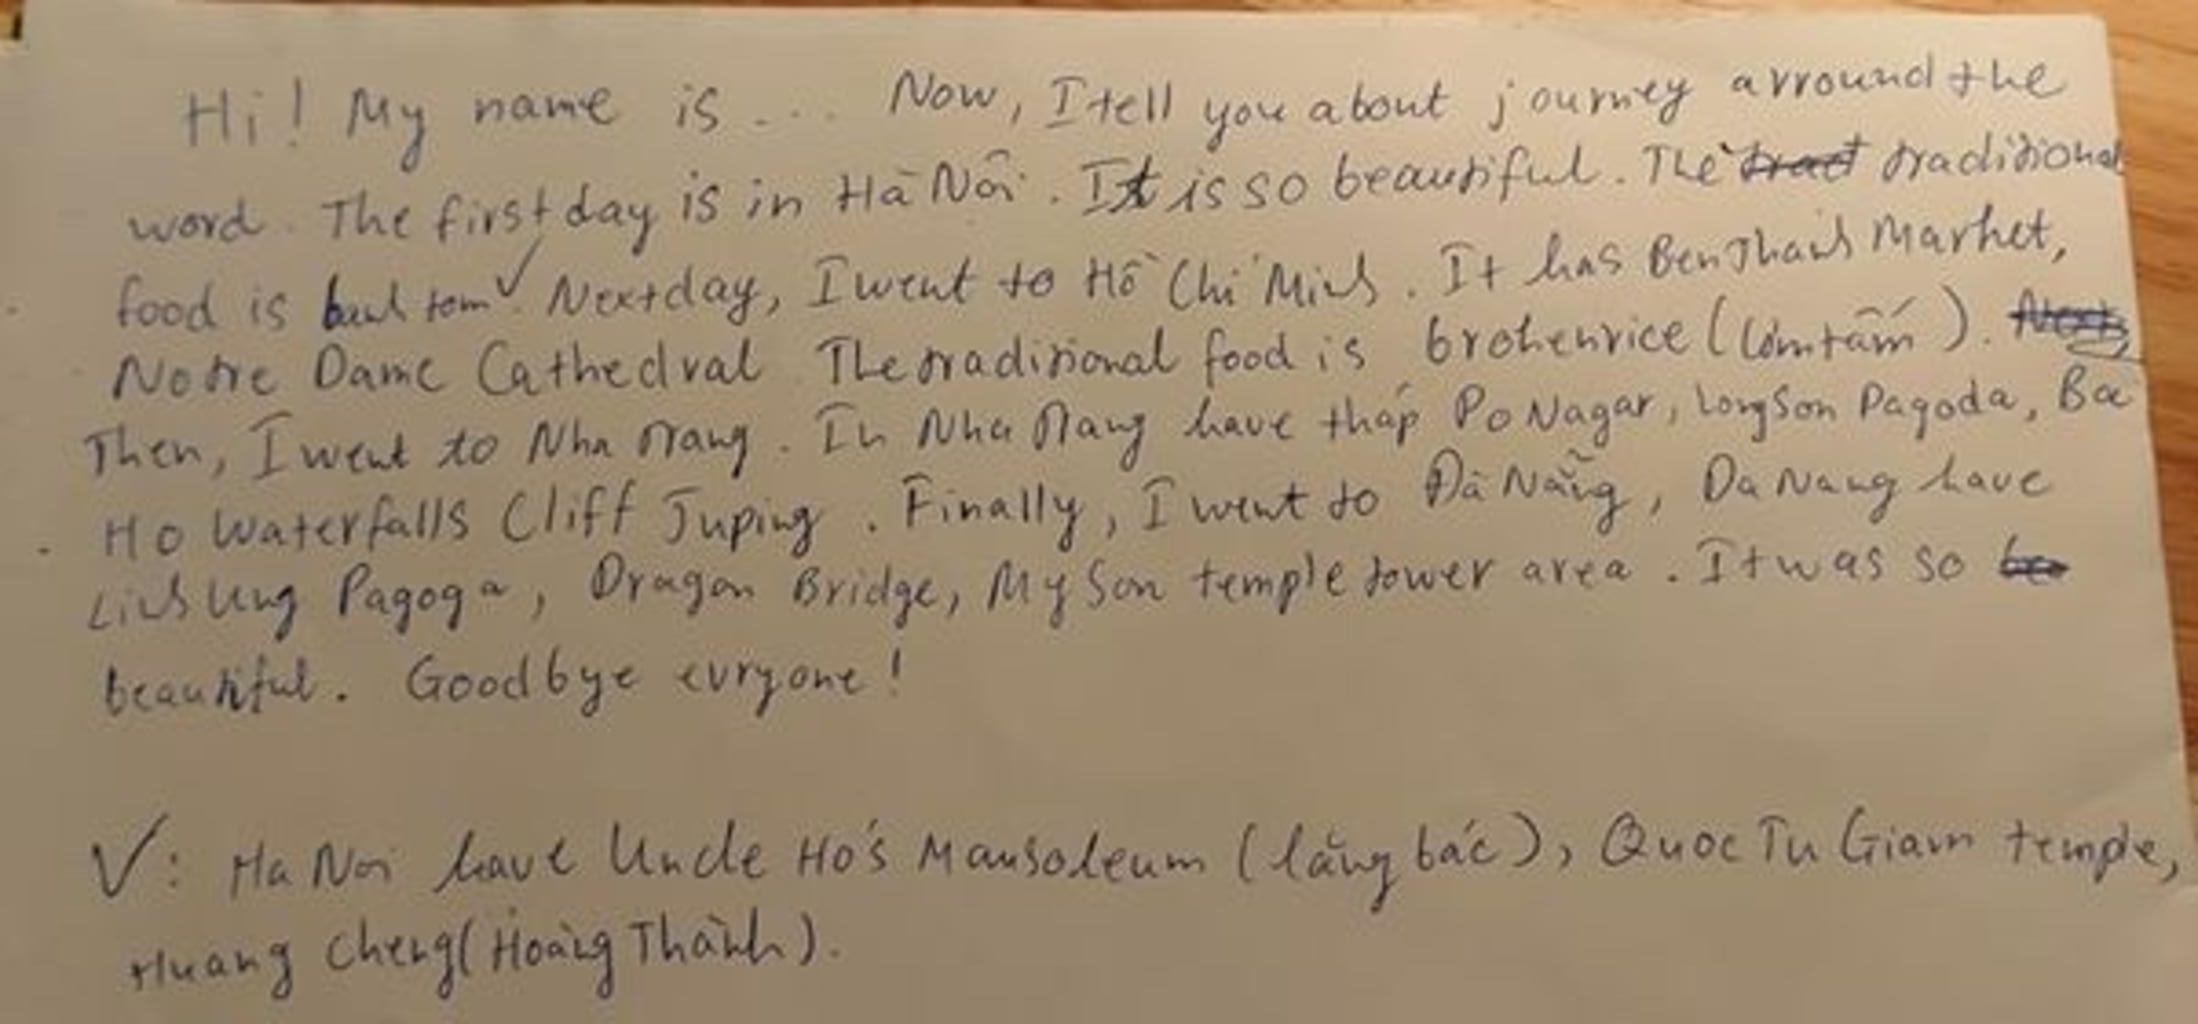 Hi! My name is ... Now, I tell you about journey arround the
word. The first day is in Hà Nôi. It is so beautiful. The traditional
food is banh tom √. Next day, I went to Hồ Chí Minh. It has Ben Thanh Market,
Notre Dame Cathedral The traditional food is brokenrice (Cơm tấm).
Then, I went to Nha Trang. In Nha Trang have tháp Po Nagar, Long Son Pagoda, Ba
Ho Waterfalls Cliff Juping. Finally, I went to Đà Nẵng, Da Nang have
Linh Ung Pagoga, Dragon Bridge, My Son temple tower area. It was so
beautiful. Goodbye evryone!
√: Ha Noi have Uncle Ho's Mausoleum (lăng bác), Quoc Tu Giam temple,
Huang Cheng (Hoàng Thành).